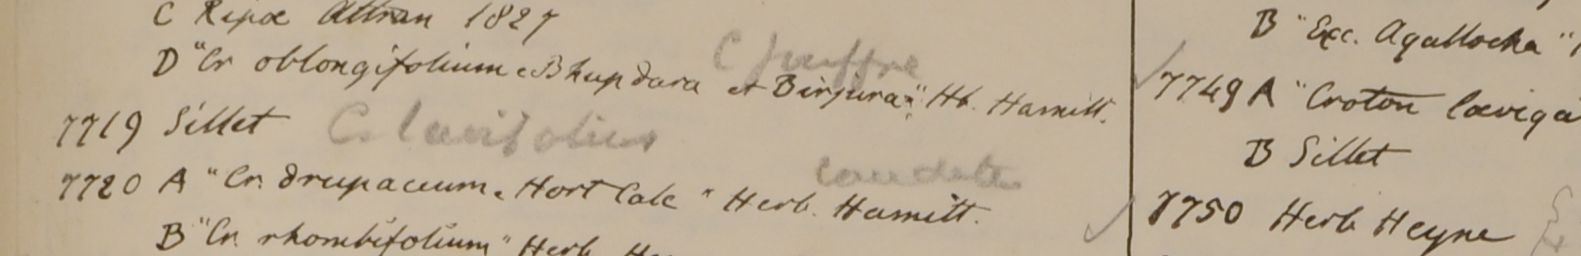 C Ripæ Attran 1827
D "Cr oblongifolium e Bhupdara et Birjura" Hb. Hamilt.
7719 Sillet C. laevifolius
caudata
7720 A "Cr. drupaceum. Hort Calc" Herb. Hamilt.
B "Cr. rhombifolium" Herb
B "Exc. Agallocha"
7749 A "Croton lævига
B Sillet
7750 Herb Heyne